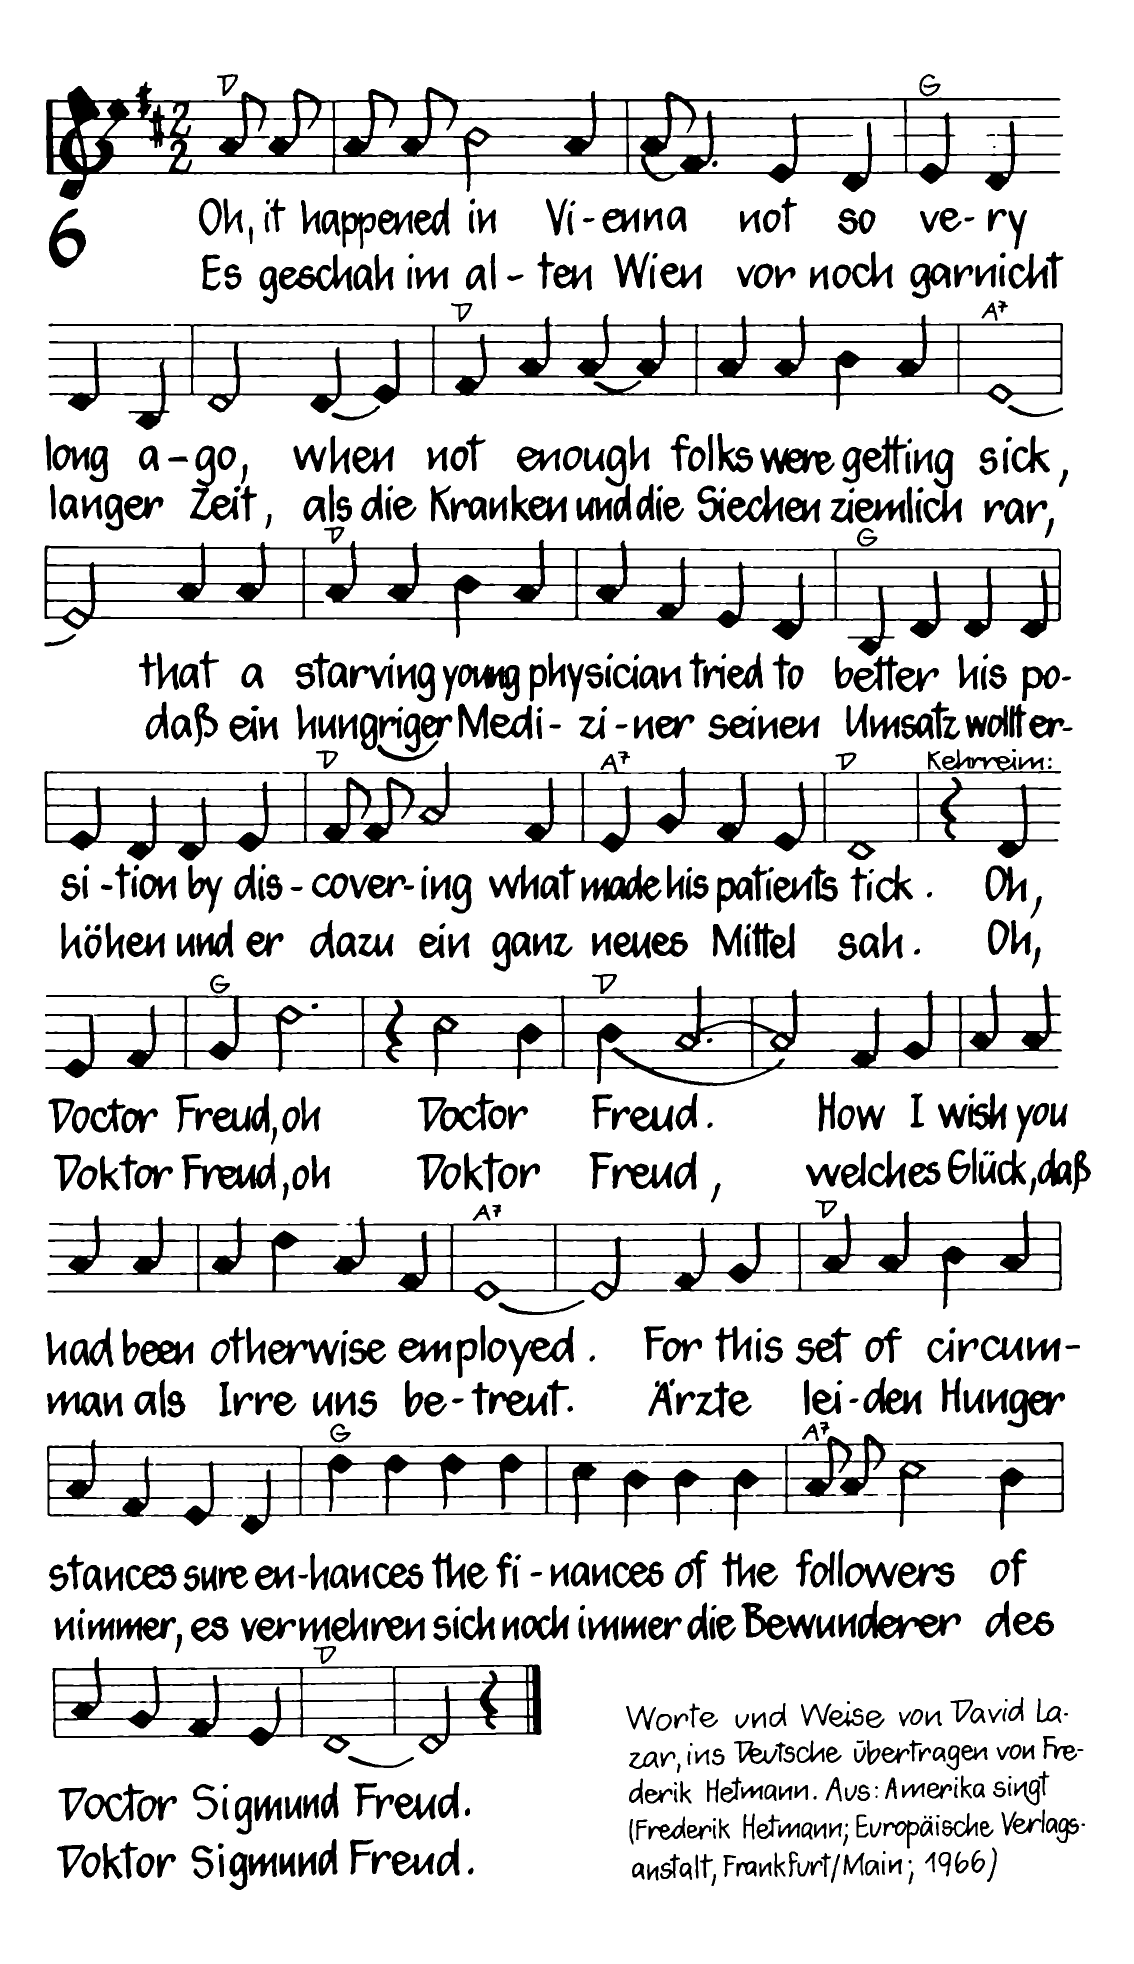 D G
2
2
6
Oh, it happened in Vi-enna not so ve-ry
Es geschah im al-ten Wien vor noch garnicht
D A7
long a-go, when not enough folks were getting sick,
langer Zeit, als die Kranken und die Siechen ziemlich rar,
D G
that a starving young physician tried to better his po-
daß ein hungriger Medi-zi-ner seinen Umsatz wollt er-
D A7 D Kehrreim:
si-tion by dis-cover-ing what made his patients tick. Oh,
höhen und er dazu ein ganz neues Mittel sah. Oh,
G D
Doctor Freud, oh Doctor Freud. How I wish you
Doktor Freud, oh Doktor Freud, welches Glück, daß
A7 D
had been otherwise employed. For this set of circum-
man als Irre uns be-treut. Ärzte lei-den Hunger
G A7
stances sure en-hances the fi-nances of the followers of
nimmer, es vermehren sich noch immer die Bewunderer des
D
Doctor Sigmund Freud.
Doktor Sigmund Freud.
Worte und Weise von David La-
zar, ins Deutsche übertragen von Fre-
derik Hetmann. Aus: Amerika singt
(Frederik Hetmann; Europäische Verlags-
anstalt, Frankfurt/Main; 1966)